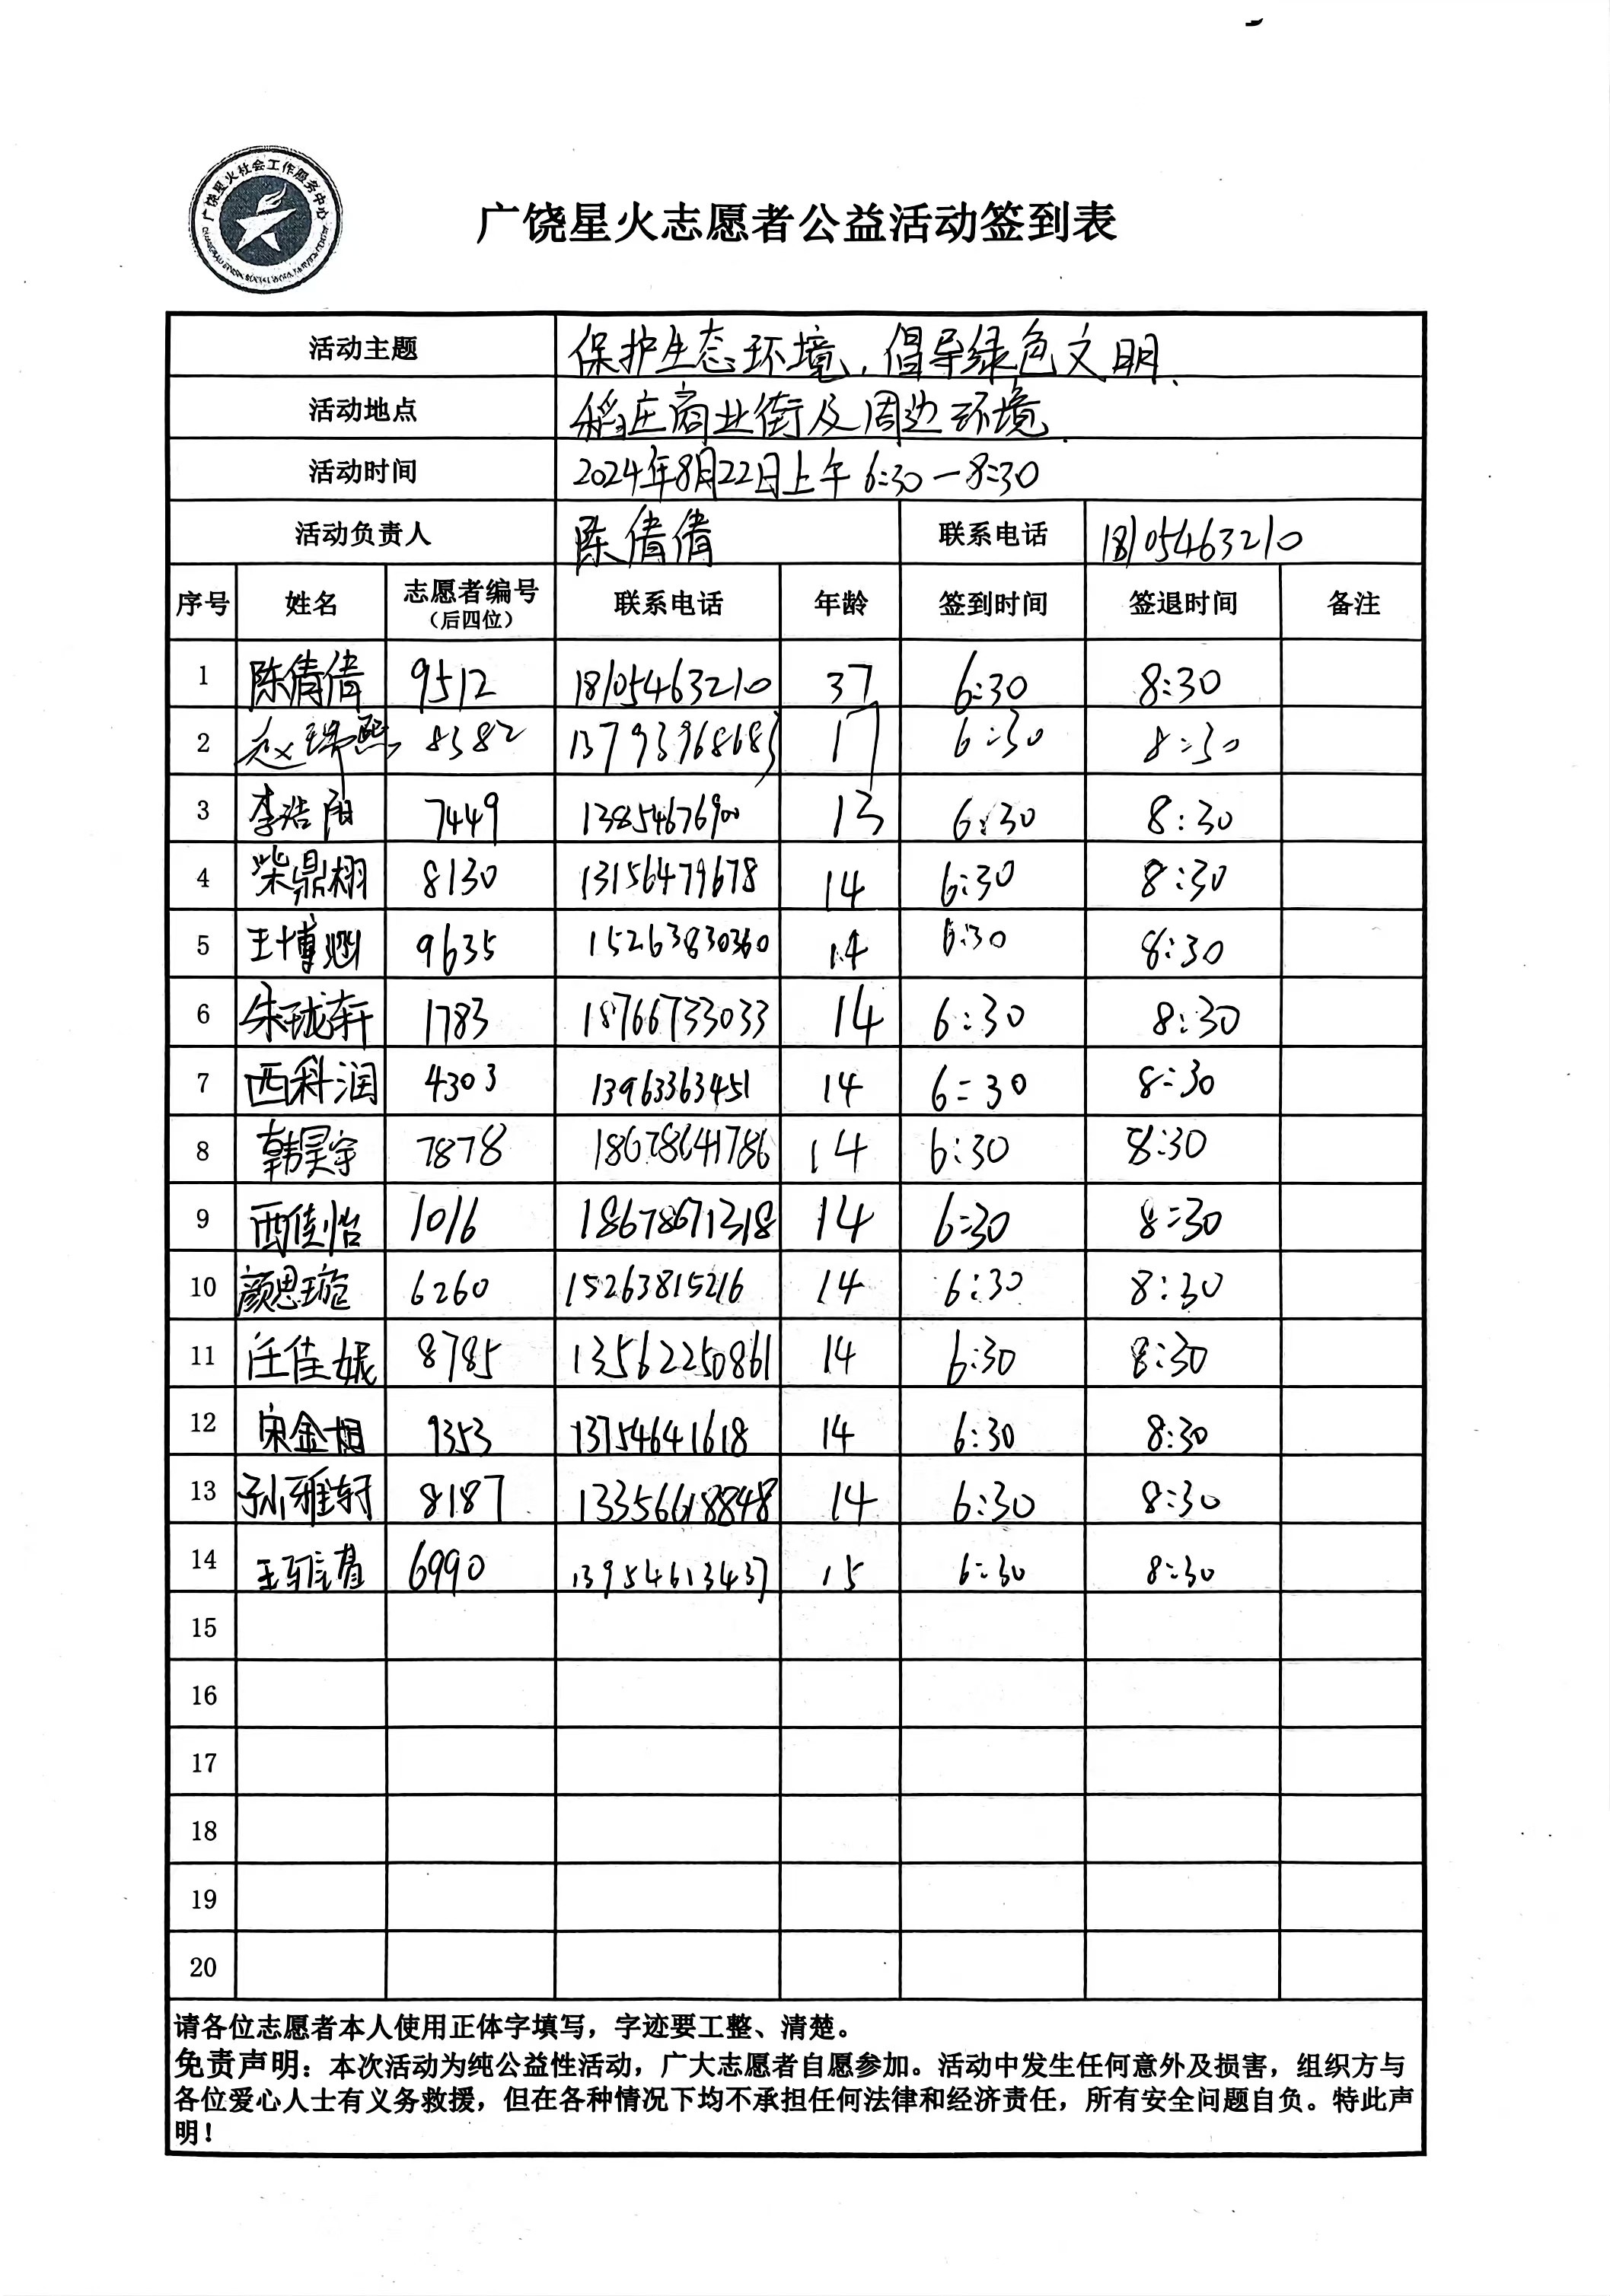 广饶星火社会工作服务中心
广饶星火志愿者公益活动签到表
活动主题 保护生态环境，倡导绿色文明.
活动地点 稻庄商业街及周边环境.
活动时间 2024年8月22日上午6:30—8:30
活动负责人 陈倩倩 联系电话 18105463210
序号 姓名 志愿者编号（后四位） 联系电话 年龄 签到时间 签退时间 备注
1 陈倩倩 9512 18105463210 37 6:30 8:30
2 赵瑞熙 8382 13793968683 17 6:30 8:30
3 李浩阳 7449 13854676900 13 6:30 8:30
4 柴鼎栩 8130 13156479678 14 6:30 8:30
5 王博 9635 15263830360 14 6:30 8:30
6 朱珑轩 1783 18766733033 14 6:30 8:30
7 西科润 4303 13963363451 14 6:30 8:30
8 韩昊宇 7878 18678641786 14 6:30 8:30
9 西佳怡 1016 18678671318 14 6:30 8:30
10 颜思璇 6260 15263815216 14 6:30 8:30
11 任佳妮 8785 13562250861 14 6:30 8:30
12 宋金 9353 13754641618 14 6:30 8:30
13 孙雅轩 8187 13356618848 14 6:30 8:30
14 王雅萱 6990 13954613437 15 6:30 8:30
15
16
17
18
19
20
请各位志愿者本人使用正体字填写，字迹要工整、清楚。
免责声明：本次活动为纯公益性活动，广大志愿者自愿参加。活动中发生任何意外及损害，组织方与
各位爱心人士有义务救援，但在各种情况下均不承担任何法律和经济责任，所有安全问题自负。特此声
明！